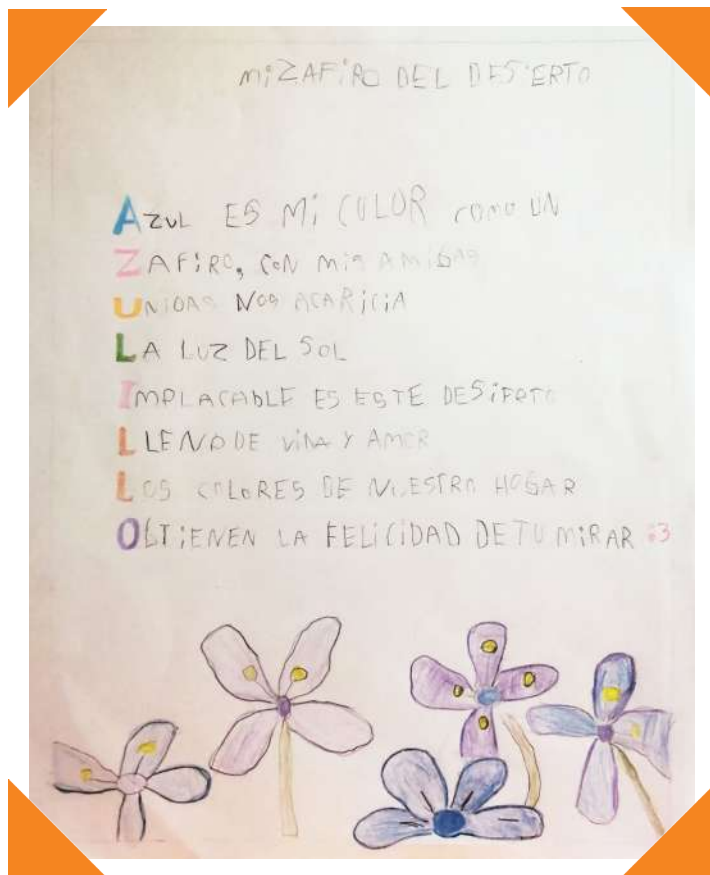 Mi ZAFiRO DEL DESiERTO
AZUL ES Mi COLOR COMO UN
ZAFiRO, CON MiS AMiGAS
UNIDAS NOS ACARiCiA
LA LUZ DEL SOL
IMPLACABLE ES ESTE DESiERTO
LLENO DE ViDA Y AMOR
LOS COLORES DE NUESTRO HOGAR
OBTiENEN LA FELiCiDAD DE TU MiRAR :3